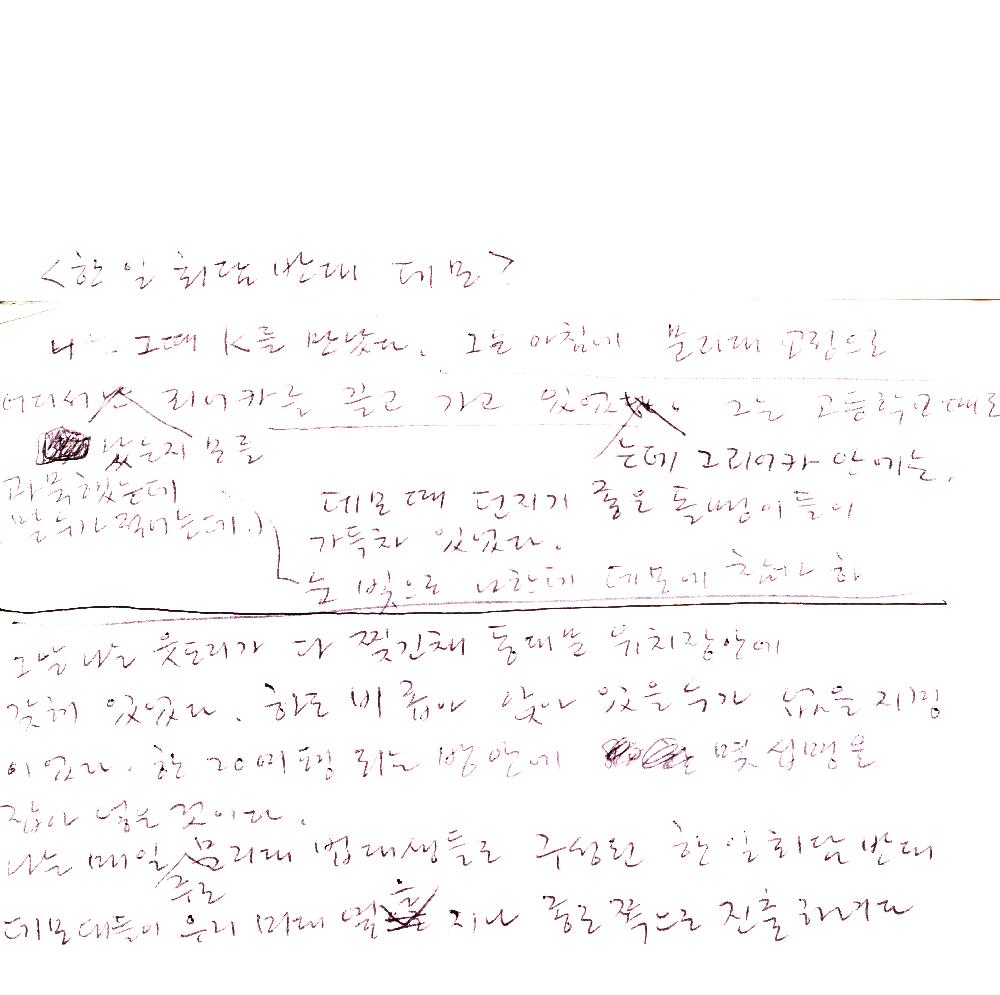 <한일 회담 반대 데모>
나는 그때 K를 만났다. 그는 아침에 문리대 교정으로
어디서 리어카를 끌고 가고 있었 . 그는 고등학교때로
났는지 모를
는데 그 리어카 안에는.
과묵했는데
데모 때 던지기 좋은 돌멩이들이
말수가 적어는데.)
가득차 있었다.
눈빛으로 나한테 데모에 참여가 하
그날 나는 웃도리가 다 찢긴채 동대문 유치장안에
갖혀 있었다. 하도 비좁아 앉아 있을수가 없을 지경
이었다. 한 20여평 되는 방안에 몇십명을
잡아 넣는 것이다.
나는 매일 문리대 법대생들로 구성된 한일회담 반대
주로
데모대들이 우리 미대 옆을 지나 종로쪽으로 진출하려다